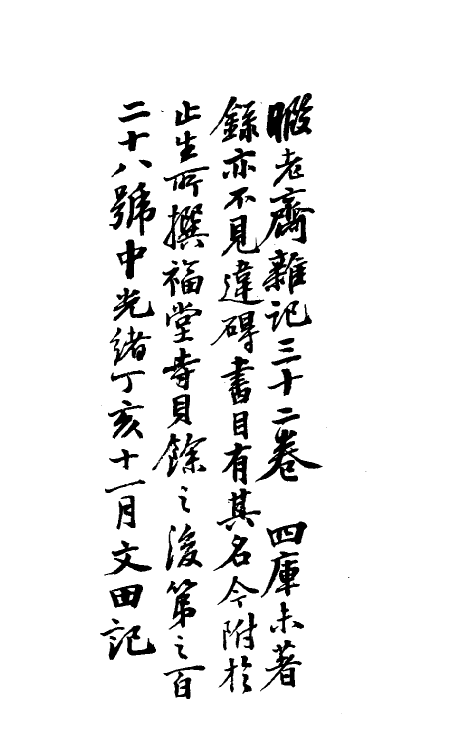 暇老齋雜記三十二卷　四庫未著
錄亦不見違碍書目有其名今附於
止生所撰福堂寺貝餘之後第之百
二十八號中光緒丁亥十一月文田記